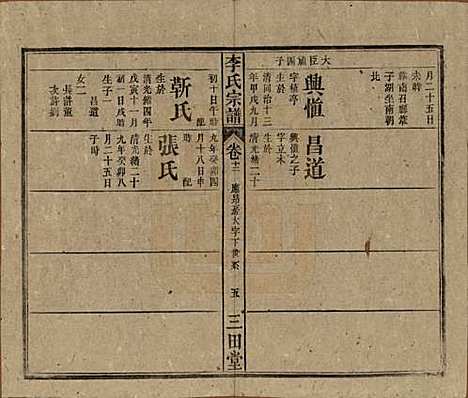 月二十五日
未時
葬南召縣葦
子湖坐南朝
北
大臣嫡四子
興慎
字積亭
生於
清同治十三
年甲戌九月
昌道
興慎之子
字立本
生於
清光緒二十
李氏宗譜
卷十二
世系
五
三田堂
初十日午時
配
靳氏
生於
清光緒四年
戊寅十一月
初一日戌時
昌道
女二
長許董
次許劉
九年癸卯四
月十八日申
時
配
張氏
生於
清光緒二十
九年癸卯八
月二十五日
子時